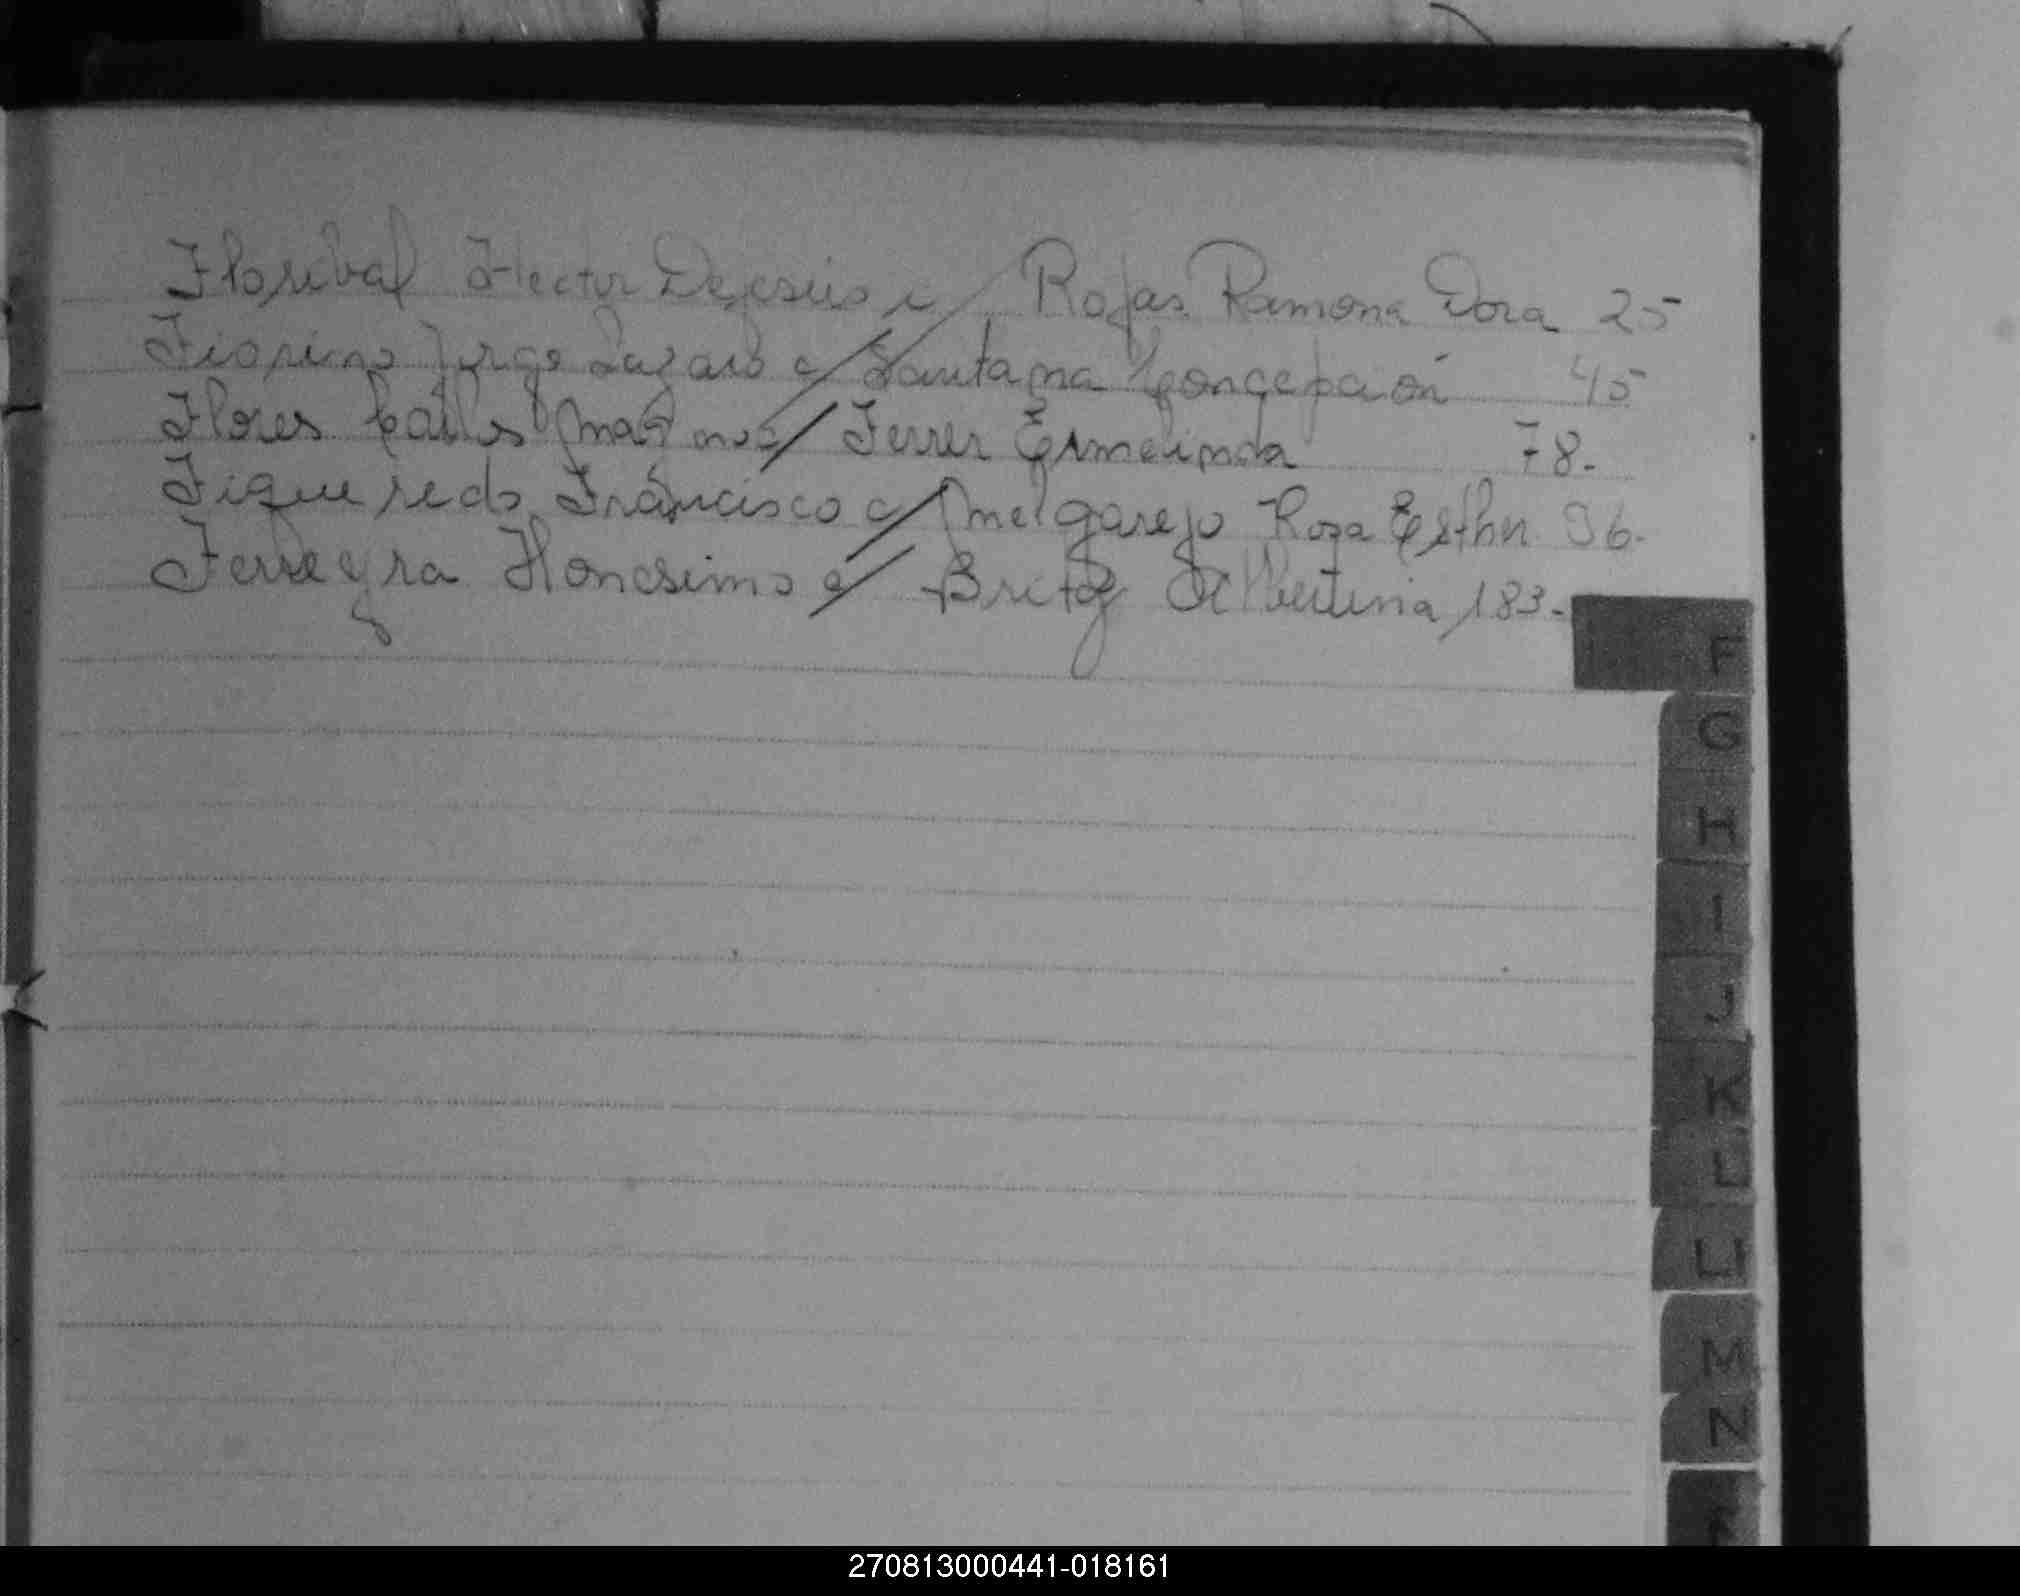 Floribal Hector Dejesús c/ Rojas Ramona Dora 25
Fiorino Jorge Lazaro c/ Santana Concepción 45
Flores Carlos Mariano c/ Ferrer Ermelinda 78.
Figueredo Francisco c/ Melgarejo Rosa Esther 96.
Ferreyra Honesimo c/ Britez Albertina 183.-
F
G
H
I
J
K
L
LL
M
N
270813000441-018161